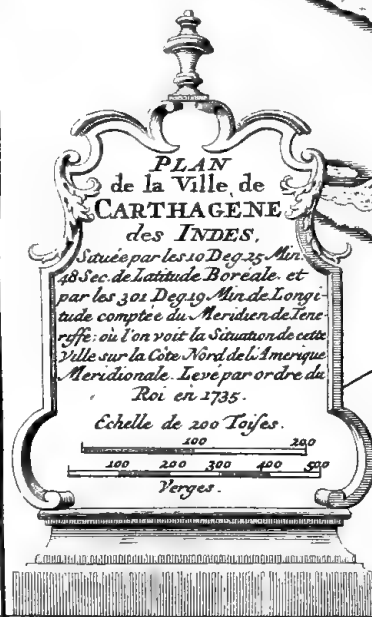 PLAN
de la Ville de
CARTHAGENE
des INDES,
Située par les 10 Deg. 25 Min.
48 Sec. de Latitude Boreale. et
par les 301 Deg. 19 Min. de Longi-
tude comptée du Meridien de Tene-
riffe: où l'on voit la Situation de cette
Ville sur la Côte Nord de l'Amerique
Meridionale. Levé par ordre du
Roi en 1735.
Echelle de 200 Toises.
100 200
100 200 300 400 500
Verges.